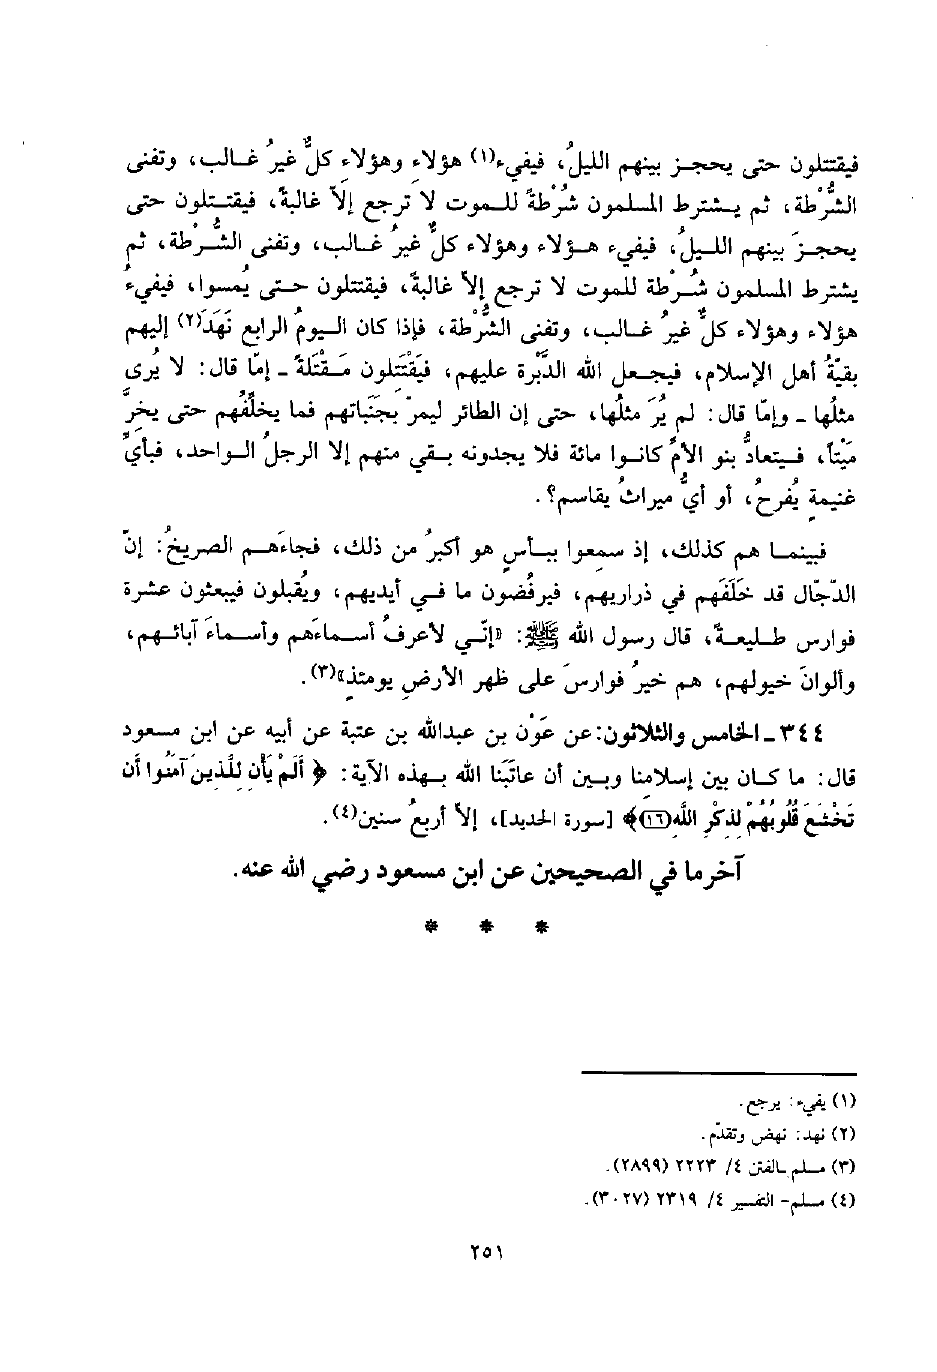 فيقتتلون حتى يحجز بينهم الليلُ، فيفيء(١) هؤلاءِ وهؤلاءِ كلٌّ غيرُ غالب، وتفنى
الشُّرْطة، ثم يشترط المسلمون شُرْطةً للموت لا ترجع إلاّ غالبةً، فيقتتلون حتى
يحجزَ بينهم الليلُ، فيفيء هؤلاء وهؤلاء كلٌّ غيرُ غالب، وتفنى الشُّرطة، ثم
يشترط المسلمون شُرْطة للموت لا ترجع إلاّ غالبةً، فيقتتلون حتى يُمسوا، فيفيءُ
هؤلاء وهؤلاء كلٌّ غيرُ غالب، وتفنى الشُّرْطة، فإذا كان اليومُ الرابع نَهَدَ(٢) إليهم
بقيّةُ أهل الإسلام، فيجعل الله الدَّبْرة عليهم، فيَقْتَتلون مَقتلةً ـ إمّا قال: لا يُرى
مثلُها ـ وإمّا قال: لم يُرَ مثلُها، حتى إن الطائر ليمرّ بجَنَباتهم فما يخلِّفُهم حتى يخِرَّ
ميّتاً، فيتعادُّ بنو الأمّ كانوا مائة فلا يجدونه بقي منهم إلا الرجلُ الواحد، فبأيِّ
غنيمةٍ يُفرحُ، أو أيُّ ميراثٍ يقاسم؟.
فبينما هم كذلك، إذ سمعوا ببأسٍ هو أكبرُ من ذلك، فجاءَهم الصريخُ: إنّ
الدّجّال قد خَلَفَهم في ذراريهم، فيرفُضون ما في أيديهم، ويُقبلون فيبعثون عشرة
فوارس طليعةً، قال رسول الله ﷺ: «إنّي لأعرفُ أسماءَهم وأسماءَ آبائهم،
وألوانَ خيولهم، هم خيرُ فوارسَ على ظهر الأرضِ يومئذٍ»(٣).
٣٤٤ ـ الخامس والثلاثون: عن عَوْن بن عبدالله بن عتبة عن أبيه عن ابن مسعود
قال: ما كان بين إسلامنا وبين أن عاتَبَنا الله بهذه الآية: ﴿ أَلَمْ يَأْنِ لِلَّذِينَ آمَنُوا أَن
تَخْشَعَ قُلُوبُهُمْ لِذِكْرِ اللَّهِ (١٦)﴾ [سورة الحديد]، إلاّ أربعُ سنين(٤).
آخر ما في الصحيحين عن ابن مسعود رضي الله عنه.
* * *
(١) يفيء: يرجع.
(٢) نهد: نهض وتقدّم.
(٣) مسلم ـ الفتن ٤/ ٢٢٢٣ (٢٨٩٩).
(٤) مسلم - التفسير ٤/ ٢٣١٩ (٣٠٢٧).
٢٥١